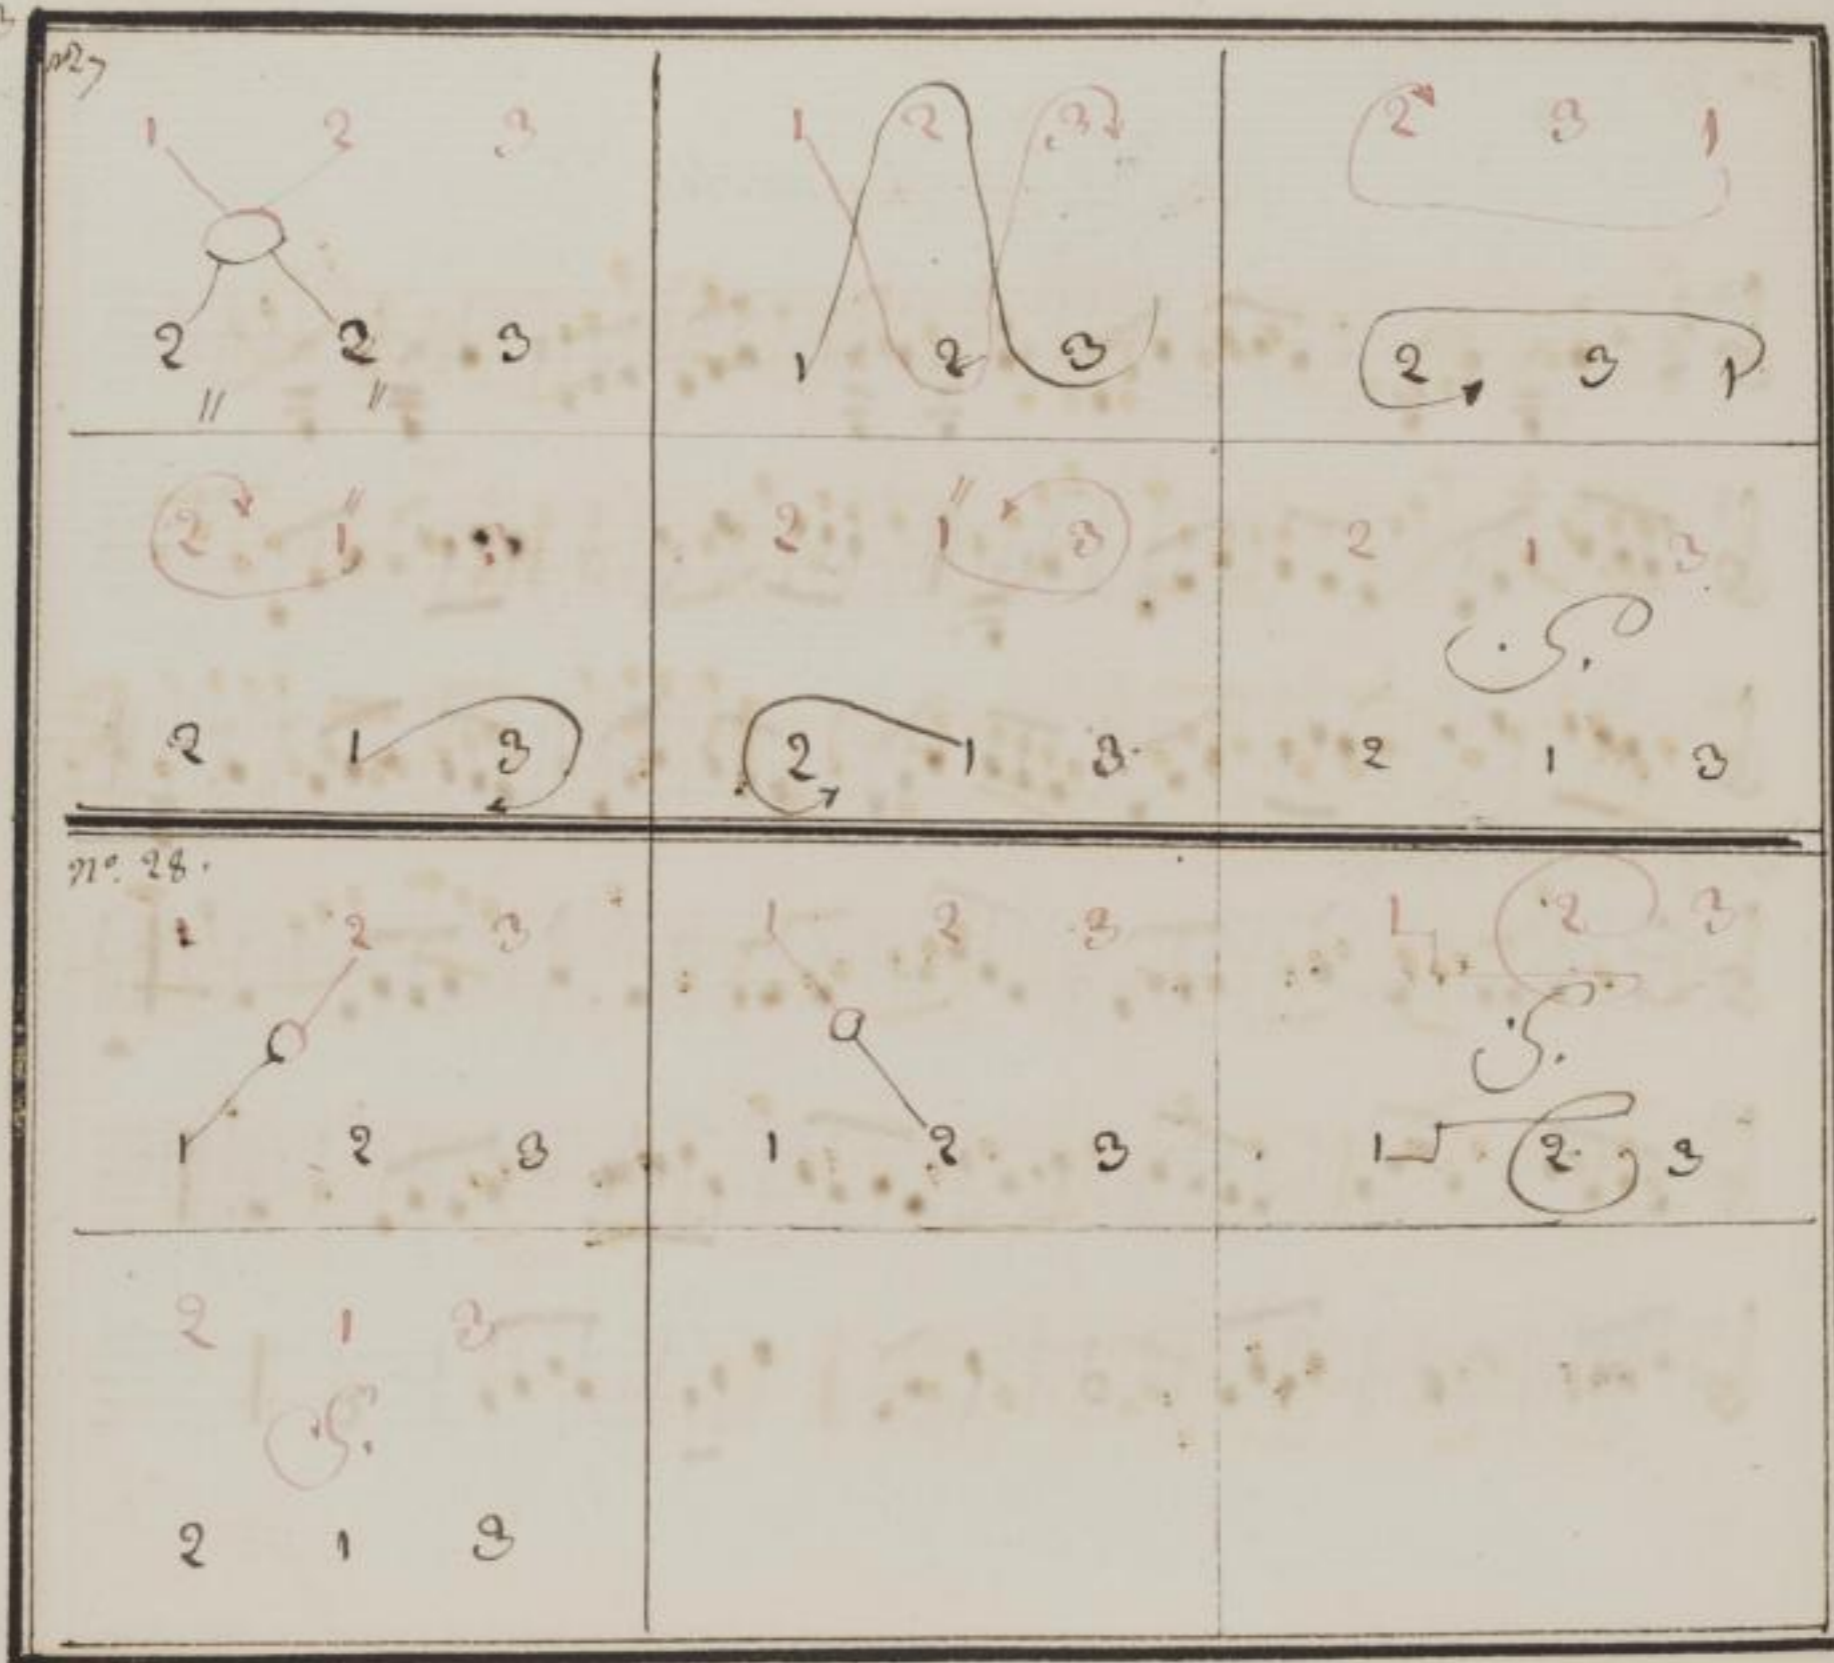 1 2 3
2 2 3
1 2 3
1 2 3
2 3 1
2 3 1
2 1 3
2 1 3
2 1 3
2 1 3
2 1 3
2 1 3
nº. 28.
1 2 3
1 2 3
1 2 3
1 2 3
1 2 3
1 2 3
2 1 3
2 1 3